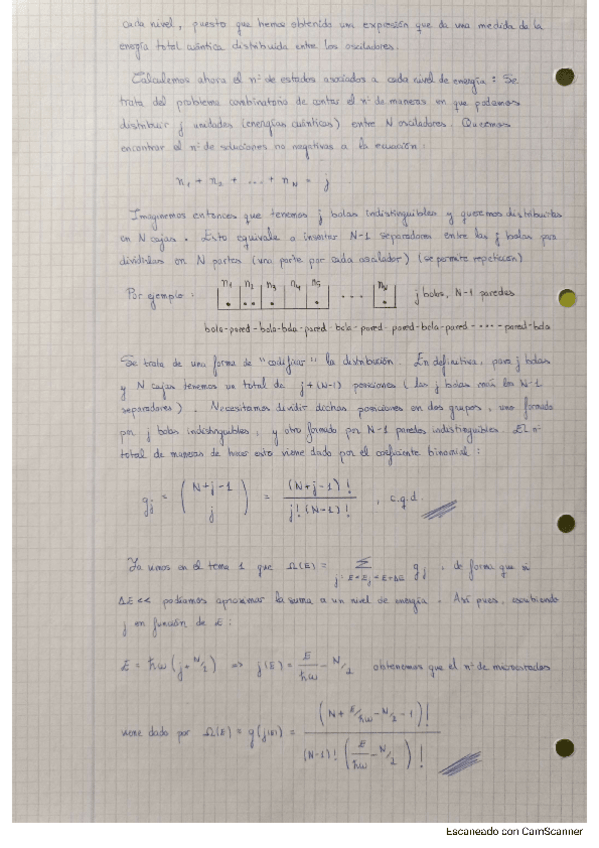 cada nivel, puesto que hemos obtenido una expresión que da una medida de la
energía total cuántica distribuida entre los osciladores.
Calculemos ahora el nº de estados asociados a cada nivel de energía: Se
trata del problema combinatorio de contar el nº de maneras en que podamos
distribuir j unidades (energías cuánticas) entre N osciladores. Queremos
encontrar el nº de soluciones no negativas a la ecuación:
n₁ + n₂ + ... + n_N = j
Imaginemos entonces que tenemos j bolas indistinguibles y queremos distribuirlas
en N cajas. Esto equivale a insertar N-1 separadores entre las j bolas para
dividirlas en N partes (una parte por cada oscilador) (se permite repetición)
Por ejemplo: n₁ n₂ n₃ n₄ n₅ ... n_N j bolas, N-1 paredes
bola-pared-bola-bola-pared-bola-pared-pared-bola-pared-····-pared-bola
Se trata de una forma de "codificar" la distribución. En definitiva, para j bolas
y N cajas tenemos un total de j+(N-1) posiciones (las j bolas más los N-1
separadores). Necesitamos dividir dichas posiciones en dos grupos, uno formado
por j bolas indistinguibles, y otro formado por N-1 paredes indistinguibles. El nº
total de maneras de hacer esto viene dado por el coeficiente binomial:
g_j = (N+j-1 j) = (N+j-1)! / j!(N-1)! , c.q.d.
Ya vimos en el tema 1 que Ω(E) = Σ j: E<E_j<E+ΔE g_j, de forma que si
ΔE<< podíamos aproximar la suma a un nivel de energía. Así pues, escribiendo
j en función de E:
E = ħω(j+N/2) => j(E) = E/ħω - N/2 obtenemos que el nº de microestados
viene dado por Ω(E) = g(j(E)) = (N + E/ħω - N/2 - 1)! / (N-1)! (E/ħω - N/2)!
Escaneado con CamScanner